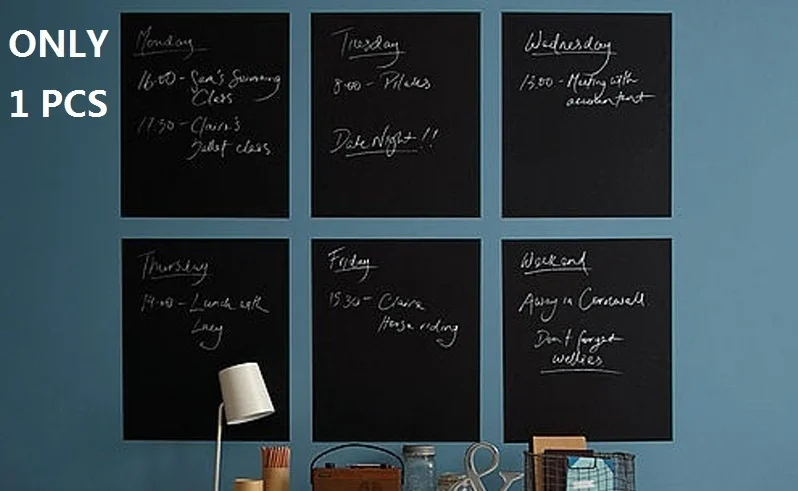 ONLY
1 PCS
Monday
16.00 - Sam's Swimming
Class
17.30 - Claire's
Ballet class
Tuesday
8.00 - Pilates
Date Night!!
Wednesday
15.00 - Meeting with
accountant
Thursday
14.00 - Lunch with
Lucy
Friday
15.30 - Claire
Horse riding
Weekend
Away in Cornwall
Don't forget
wellies
&